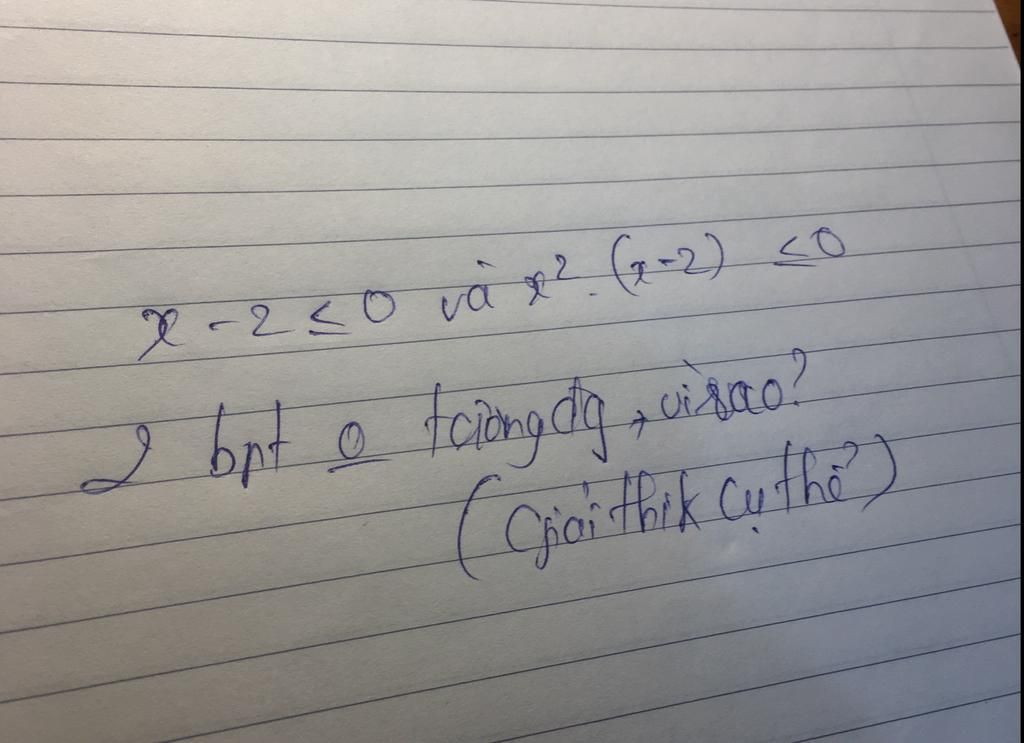 x - 2 ≤ 0 và x². (x-2) ≤ 0
2 bpt o tương đg, vì sao?
(Giải thik cụ thể)